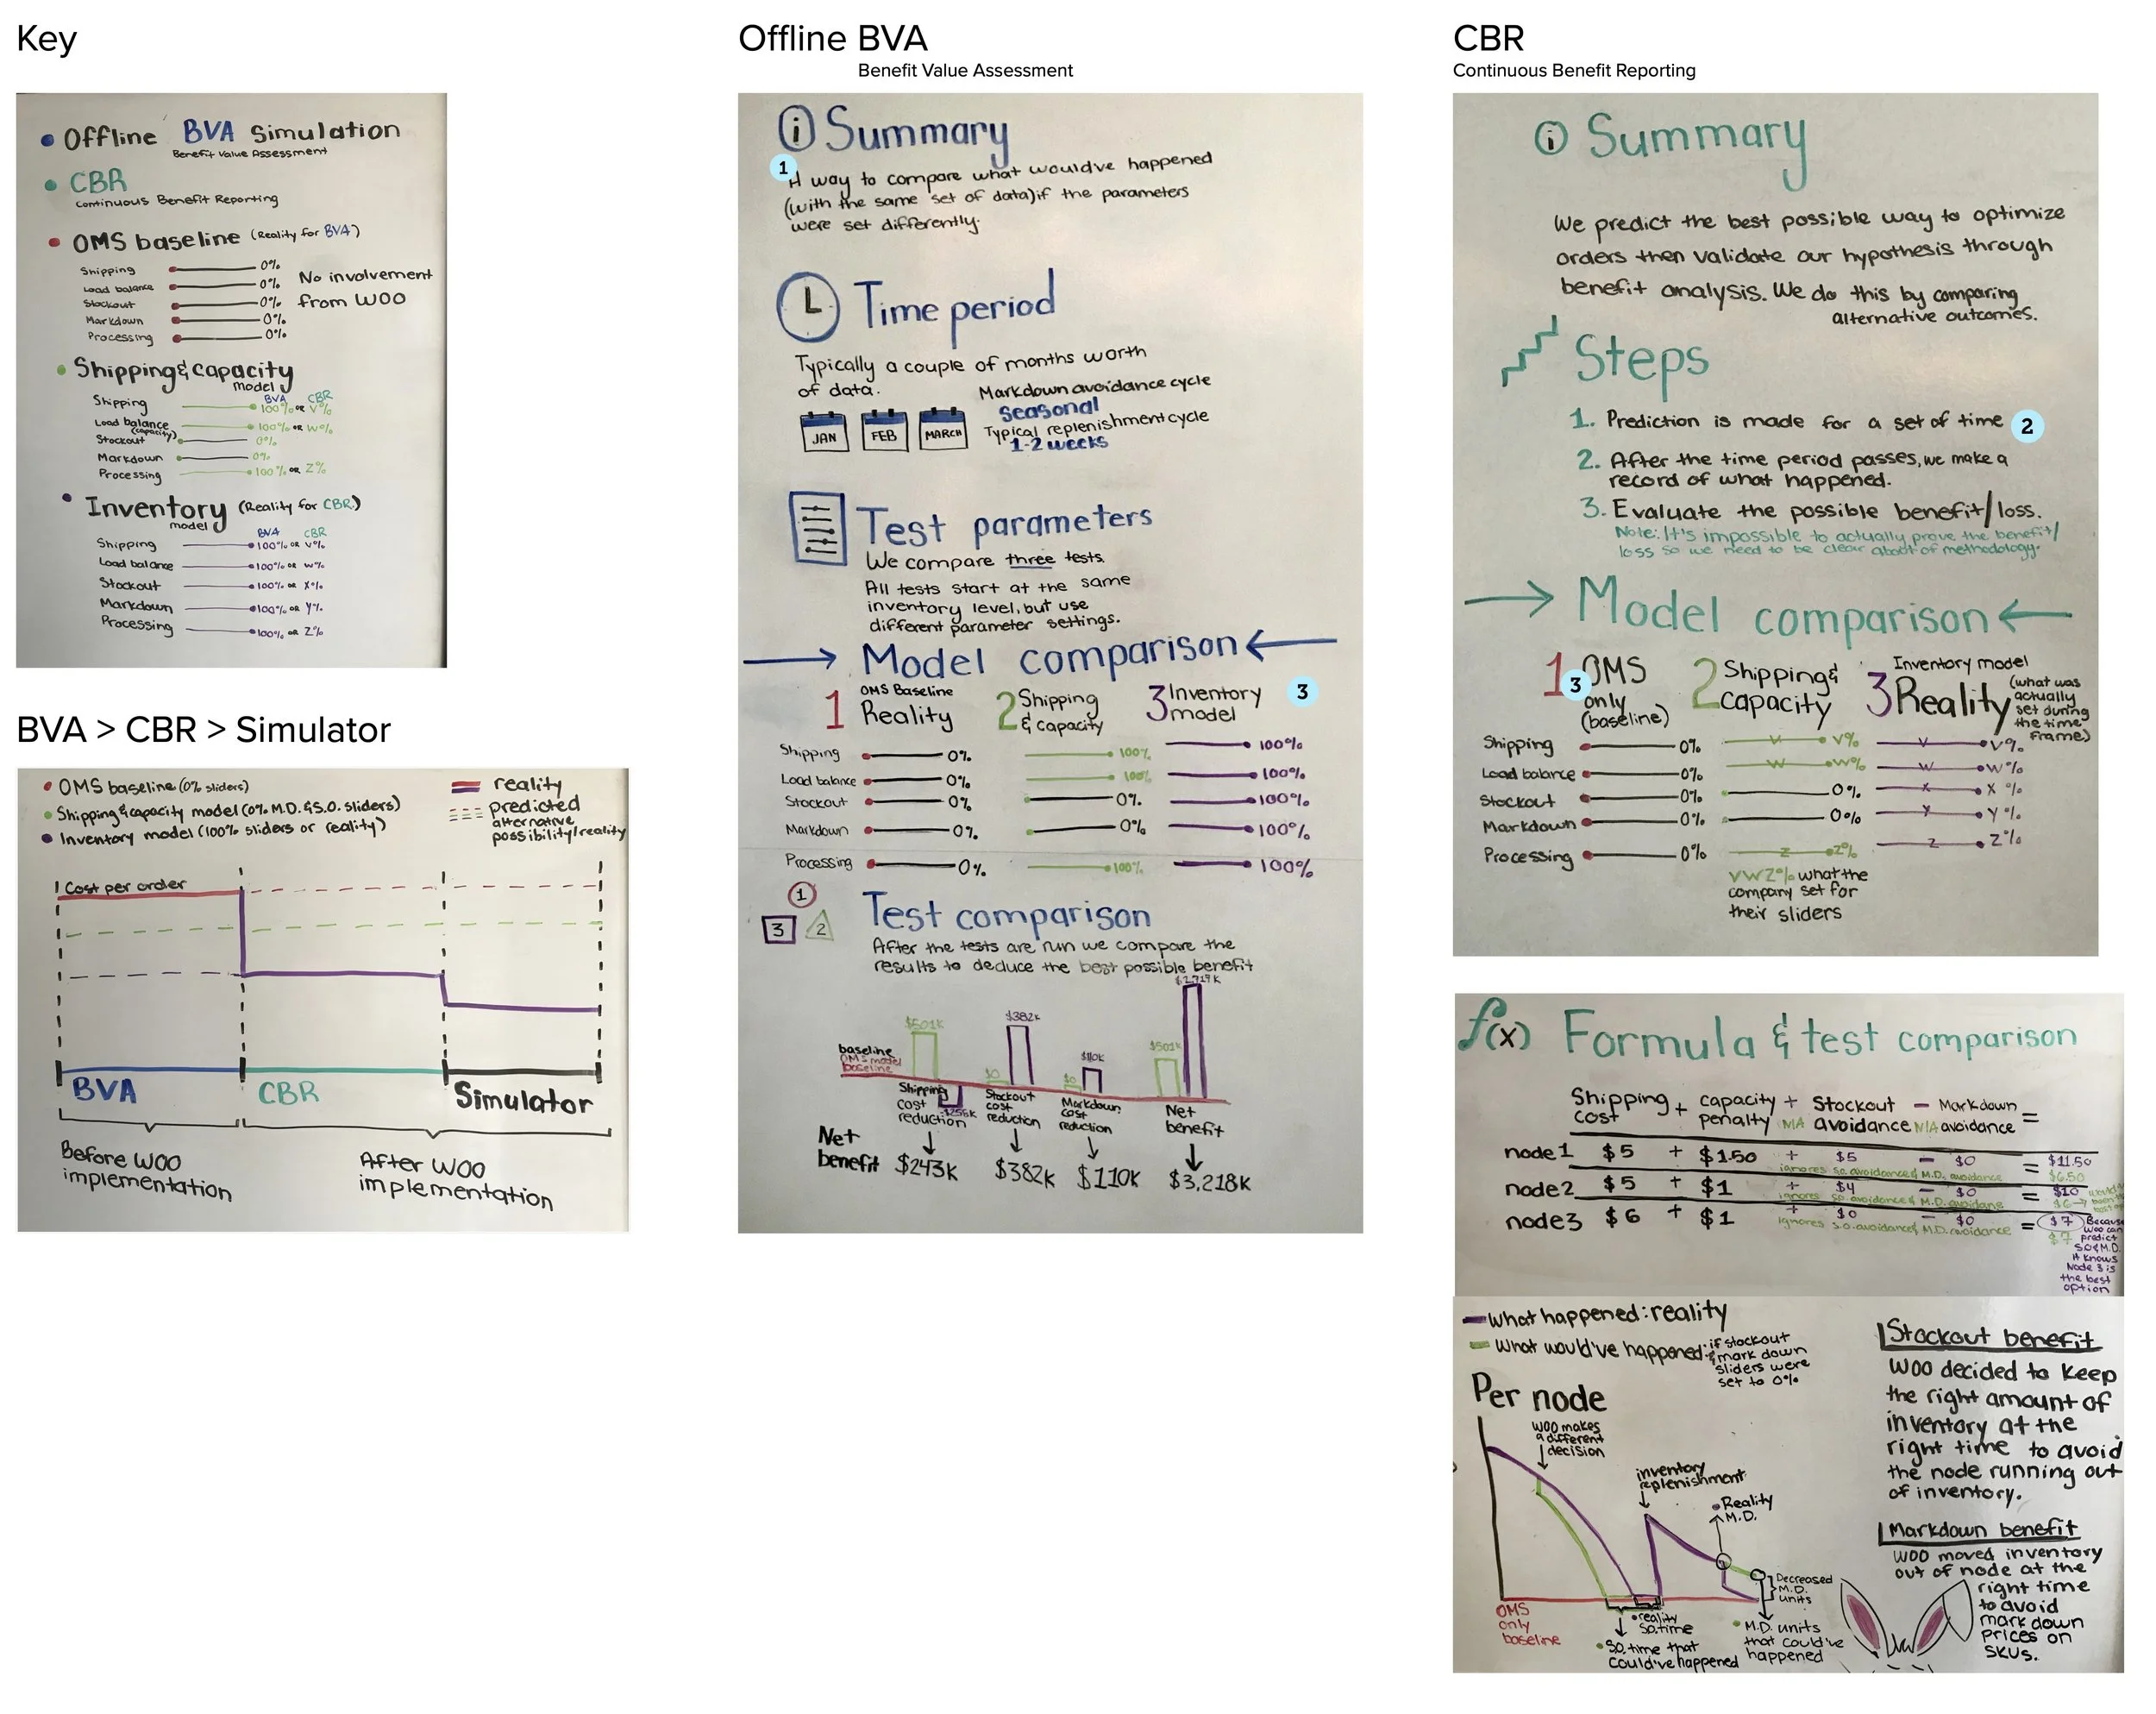 Key
• Offline BVA Simulation
Benefit Value Assessment
• CBR
Continuous Benefit Reporting
• OMS baseline (Reality for BVA)
Shipping 0%
Load balance 0%
Stockout 0%
Markdown 0%
Processing 0%
No involvement
from WOO
• Shipping & capacity
model
BVA CBR
Shipping 100% OR V%
Load balance 100% OR W%
(capacity)
Stockout 0%
Markdown 0%
Processing 100% OR Z%
• Inventory (Reality for CBR)
model
BVA CBR
Shipping 100% OR V%
Load balance 100% OR W%
Stockout 100% OR X%
Markdown 100% OR Y%
Processing 100% OR Z%
BVA > CBR > Simulator
• OMS baseline (0% sliders)
• Shipping & capacity model (0% M.D. & S.O. sliders)
• Inventory model (100% sliders or reality)
reality
predicted
alternative
possibility/reality
Cost per order
BVA
CBR
Simulator
Before WOO
implementation
After WOO
implementation
Offline BVA
Benefit Value Assessment
i Summary
1
A way to compare what would've happened
(with the same set of data) if the parameters
were set differently.
Time period
Typically a couple of months worth
of data.
JAN FEB MARCH
Markdown avoidance cycle
Seasonal
Typical replenishment cycle
1-2 weeks
Test parameters
We compare three tests.
All tests start at the same
inventory level, but use
different parameter settings.
Model comparison
1 OMS Baseline
Reality
2 Shipping
& capacity
3 Inventory
model
3
Shipping 0% 100% 100%
Load balance 0% 100% 100%
Stockout 0% 0% 100%
Markdown 0% 0% 100%
Processing 0% 100% 100%
1
3 2
Test comparison
After the tests are run we compare the
results to deduce the best possible benefit
baseline
OMS model
baseline
$501K
$382K
$0
$110K
$0
$501K
Shipping
cost
reduction
Stockout
cost
reduction
Markdown
cost
reduction
Net
benefit
Net
benefit
$243K
$382K
$110K
$3,218K
CBR
Continuous Benefit Reporting
i Summary
We predict the best possible way to optimize
orders then validate our hypothesis through
benefit analysis. We do this by comparing
alternative outcomes.
Steps
1. Prediction is made for a set of time
2
2. After the time period passes, we make a
record of what happened.
3. Evaluate the possible benefit/loss.
Note: It's impossible to actually prove the benefit/
loss so we need to be clear about of methodology.
Model comparison
1 OMS
only
(baseline)
3
2 Shipping &
capacity
3 Inventory model
Reality
(what was
actually
set during
the time
frame)
Shipping 0% V V% V V%
Load balance 0% W W% W W%
Stockout 0% 0% X X%
Markdown 0% 0% Y Y%
Processing 0% Z Z% Z Z%
VWZ% what the
company set for
their sliders
f(x) Formula & test comparison
Shipping cost + capacity penalty + N/A Stockout avoidance - N/A Markdown avoidance =
node1 $5 + $1.50 + $5 - $0 = $11.50
ignores s.o. avoidance & M.D. avoidance $6.50
node2 $5 + $1 + $4 - $0 = $10
ignores so avoidance & M.D. avoidans $6
node3 $6 + $1 + $0 - $0 = $7
ignores s.o. avoidance & M.D. avoidance $7
Because
WOO can
predict
S.O & M.D.
it knows
Node 3 is
the best
option
What happened: reality
What would've happened: if stockout
& mark down
sliders were
set to 0%
Per node
WOO makes
a different
decision
inventory
replenishment
• Reality
M.D.
Decreased
M.D.
units
OMS
only
baseline
• reality
s.o. time
• S.O. time that
could've happened
• M.D. units
that could've
happened
Stockout benefit
WOO decided to keep
the right amount of
inventory at the
right time to avoid
the node running out
of inventory.
Markdown benefit
WOO moved inventory
out of node at the
right time
to avoid
mark down
prices on
SKUs.